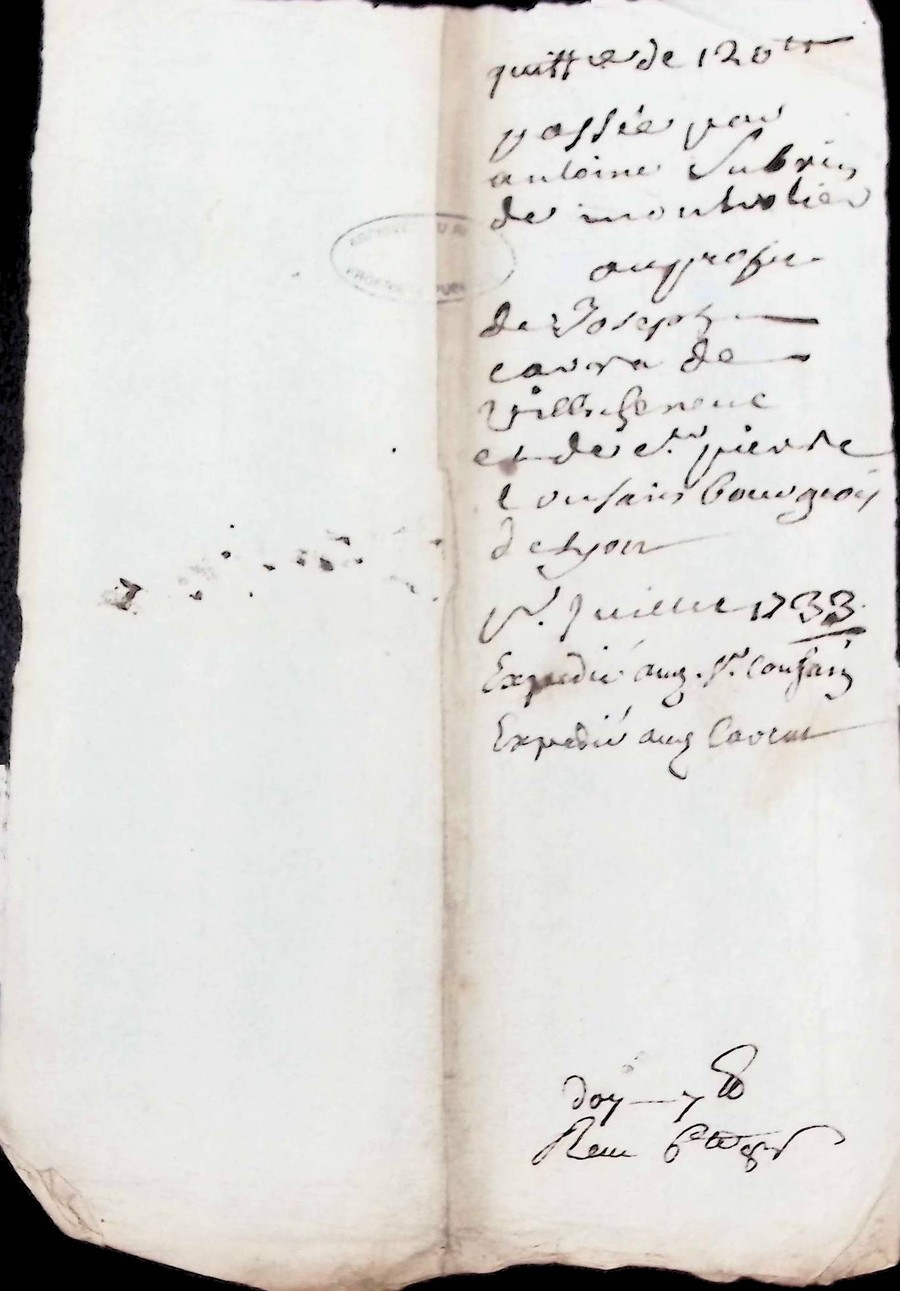 quittce de 120tt
passée par
antoine Subrin
de montrotier
au proffit
de Joseph
carra de
Villecheneue
et de sr. pierre
Cousain bourgeois
de Lyon
pr. Juillet 1733
Expedié aud. Sr. Cousain
Expedié aud Carra
ARCHIVES DU RH
doy
Reçu